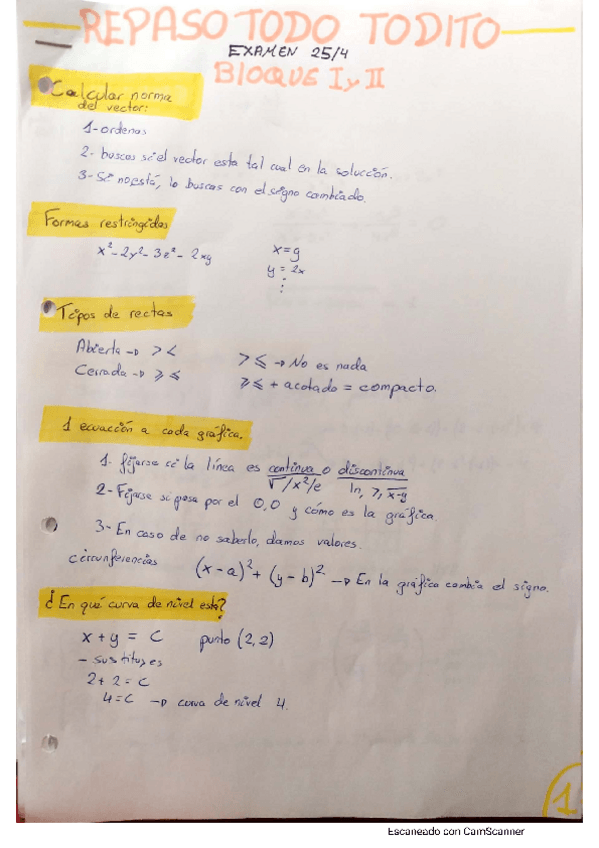 REPASO TODO TODITO
EXAMEN 25/4
BLOQUE I y II
Calcular norma
del vector:
1- ordenas
2- buscas si el vector esta tal cual en la solución.
3- Si no está, lo buscas con el signo cambiado.
Formas restringidas
x² - 2y² - 3z² - 2xy
x = y
y = 2x
⋮
Tipos de rectas
Abierta → > <
Cerrada → ⩾ ⩽
> ⩽ → No es nada
⩾ ⩽ + acotado = compacto.
1 ecuación a cada gráfica.
1- fijarse si la línea es continua o discontinua
√ / x² / e ln, >, x-y
2- Fijarse si pasa por el 0,0 y cómo es la gráfica.
3- En caso de no saberlo, damos valores.
circunferencias
(x - a)² + (y - b)² → En la gráfica cambia el signo.
¿En qué curva de nivel está?
x + y = C punto (2, 2)
- sustituyes
2 + 2 = C
4 = C → curva de nivel 4.
1
Escaneado con CamScanner